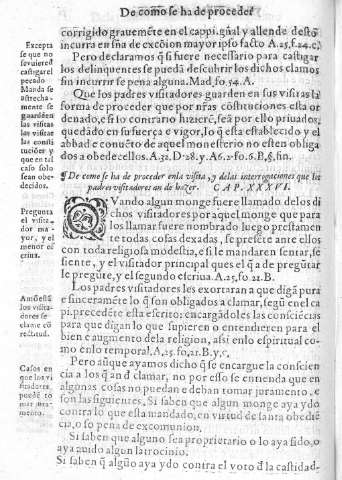 De como se ha de proceder
corrigido grauemẽte en el cappi. gñal y allende desto
incurra en sñia de excõion mayor ipso facto A.25.f.24.c.
Pero declaramos q̃ si fuere necessario para castigar
los delinquentes se puedã descubrir los dichos clamos
sin incurrir en pena alguna. Mad. fo. 54. A.
Que los padres visitadores guarden en sus visitas la
forma de proceder que por n̄ras cõstituciones esta or
denado, e si lo contrario hizierẽ, seã por ello priuados,
quedãdo en su fuerça e vigor, lo q̃ esta establecido y el
abbad e conuẽto de aquel monesterio no esten obliga
dos a obedecellos. A.32.D.28.y.A6.2.fo.6.B,§,fin.
¶ De como se ha de proceder enla visita, y delas interrogaciones que los
padres visitadores an de hazer. CAP. XXXVI.
QVando algun monge fuere llamado delos di
chos visitadores por aquel monge que para
los llamar fuere nombrado luego prestamen
te todas cosas dexadas, se presẽte ante ellos
con toda religiosa modestia, e si le mandaren sentar, se
siente, y el visitador principal ques el q̃ a de pregũtar
le pregũte, y el segundo escriua. A.25. fo. 21. B.
Los padres visitadores les exortaran a que digã pura
e sinceramẽte lo q̃ son obligados a clamar, segũ en el ca
pi. precedẽte esta escrito: encargãdoles las consciẽcias
para que digan lo que supieren o entendieren para el
bien e augmento dela religion, assi enlo espiritual co-
mo enlo temporal. A.25. fo. 21. B. y, c,
Pero aũque ayamos dicho q̃ se encargue la conscien
cia a los q̃ an d̃ clamar, no por esso se entienda que en
algunas cosas no puedan e deban tomar juramento, e
son las siguientes. Si saben que algun monge aya ydo
contra lo que esta mandado, en virtud de santa obediẽ
cia, o so pena de excomunion.
Si saben que alguno sea proprietario o lo aya sido, o
aya auido algun latrocinio.
Si saben q̃ algũo aya ydo contra el voto d̃ la castidad-
Excepta
se que no
se
castigar el
pecado
Manda se
estrecha-
mente q̃
guarden
las visitas
las visitas
las consti
tuciões y
que en tal
caso solo
sean obe-
decidos.
Pregunta
el visita
dor ma-
yor, y el
menor es
criua.
los visita-
dores se
clame cõ
rectitud.
Casos en
que los vi
sitadores
puedẽ to
mar jura-
mento.